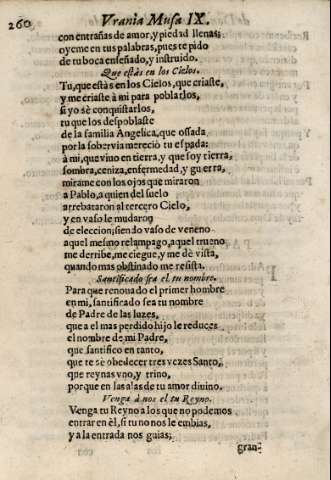 260 Vrania Musa IX.
con entrañas de amor, y piedad llenas;
oyeme en tus palabras, pues te pido
de tu boca enseñado, y instruido.
Que estàs en los Cielos.
Tu, que estàs en los Cielos, que criaste,
y me criaste à mi para poblarlos,
si yo sè conquistarlos,
tu que los despoblaste
de la familia Angelica, que ossada
por la sobervia mereciò tu espada:
à mi, que viuo en tierra, y que soy tierra,
sombra, ceniza, enfermedad, y guerra,
mirame con los ojos que miraron
a Pablo, a quien del suelo
arrebataron al tercero Cielo,
y en vaso le mudaron
de eleccion; siendo vaso de veneno
aquel mesmo relampago, aquel trueno
me derribe, me ciegue, y me dè vista,
quando mas obstinado me resista.
Santificado sea el tu nombre.
Para que renouado el primer hombre
en mi, santificado sea tu nombre
de Padre de las luzes,
que a el mas perdido hijo le reduces
el nombre de mi Padre,
que santifico en tanto,
que te sè obedecer tres vezes Santo,
que reynas vno, y trino,
porque en las alas de tu amor diuino.
Venga à nos el tu Reyno.
Venga tu Reyno a los que no podemos
entrar en èl, si tu no nos le embias,
y a la entrada nos guias;
gran-